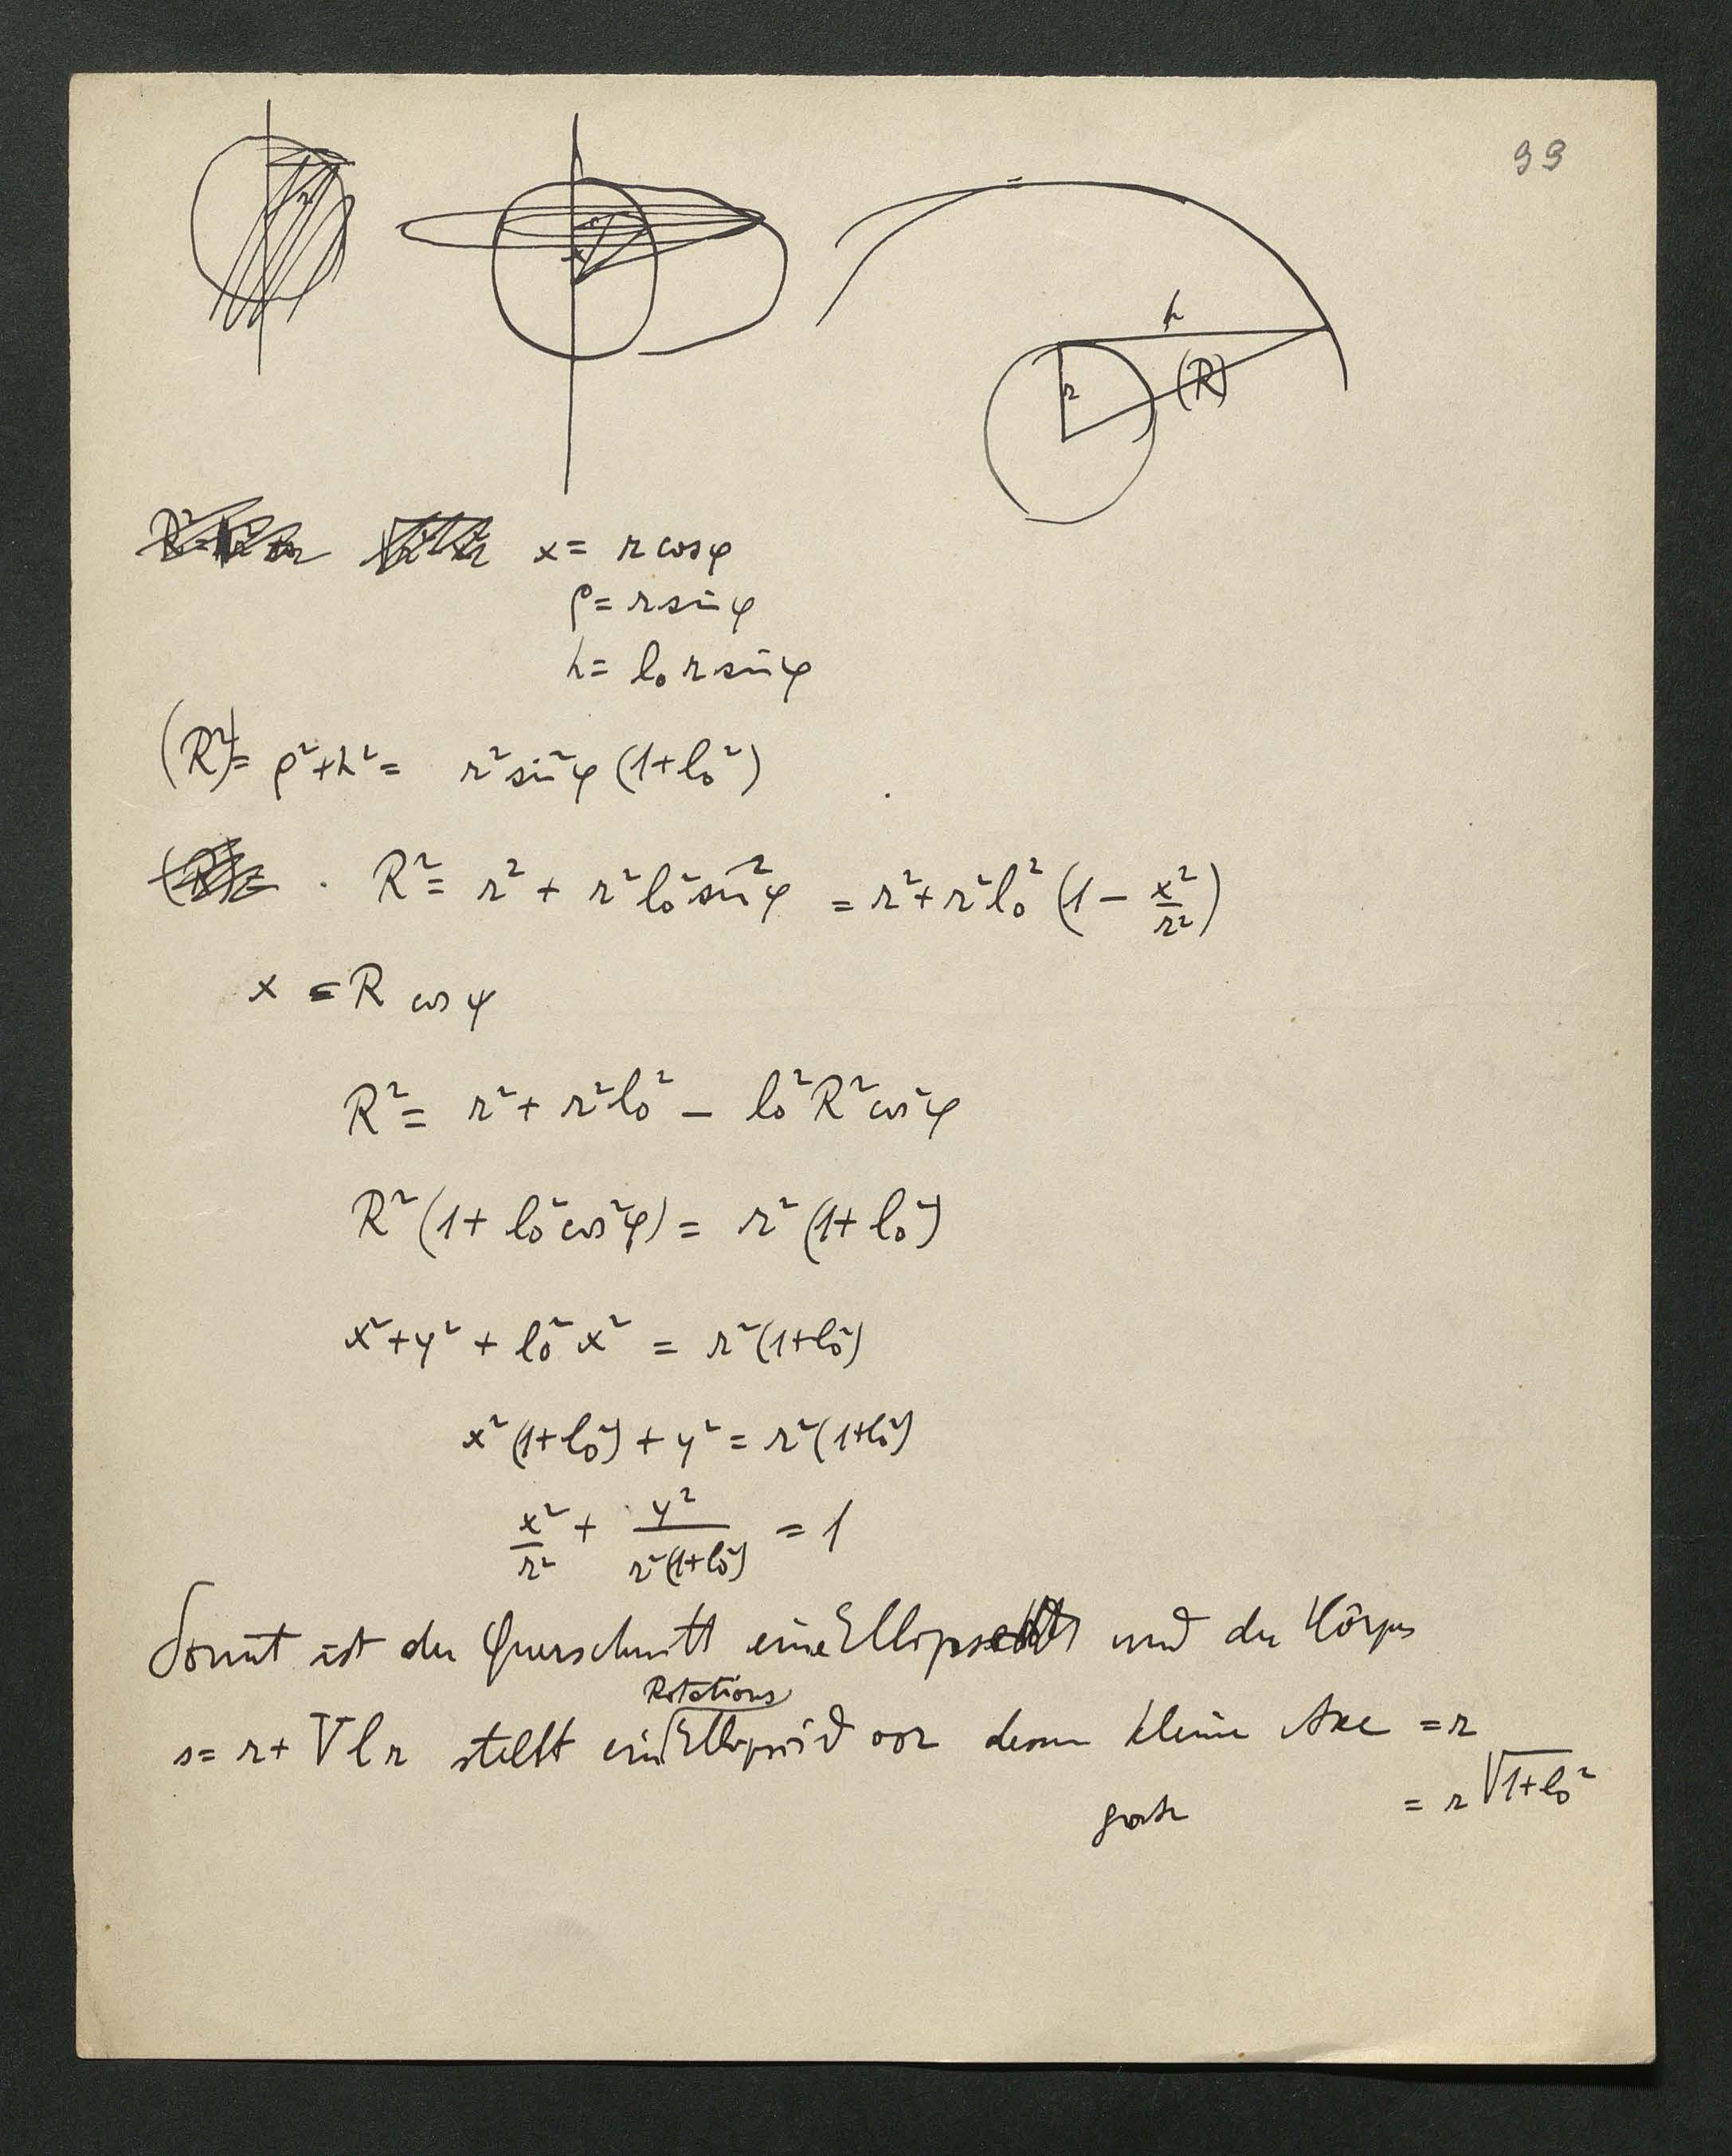 99
r
r
x
h
r
(R)
x = r cos φ
ρ = r sin φ
h = l₀ r sin φ
(R²) = ρ² + h² = r² sin² φ (1+l₀²)
R² = r² + r² l₀² sin² φ = r² + r² l₀² (1 − x²/r²)
x = R cos ψ
R² = r² + r² l₀² − l₀² R² cos² φ
R² (1 + l₀² cos² φ) = r² (1 + l₀²)
x² + y² + l₀² x² = r² (1+l₀²)
x² (1+l₀²) + y² = r² (1+l₀²)
x²/r² + y²/r²(1+l₀²) = 1
Somit ist der Querschnitt eine Ellipse und der Körper
Rotations
s = r + V l r stellt ein Ellipsoid vor deren kleine Axe = r
große = r √1+l₀²